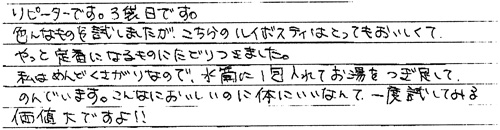 リピーターです。3袋目です。
色んなものを試しましたが、こちらのルイボスティはとってもおいしくて、
やっと定番になるものにたどりつきました。
私はめんどくさがりなので、水筒に1包入れてお湯をつぎ足して、
のんでいます。こんなにおいしいのに体にいいなんて、一度試してみる
価値大ですよ!!